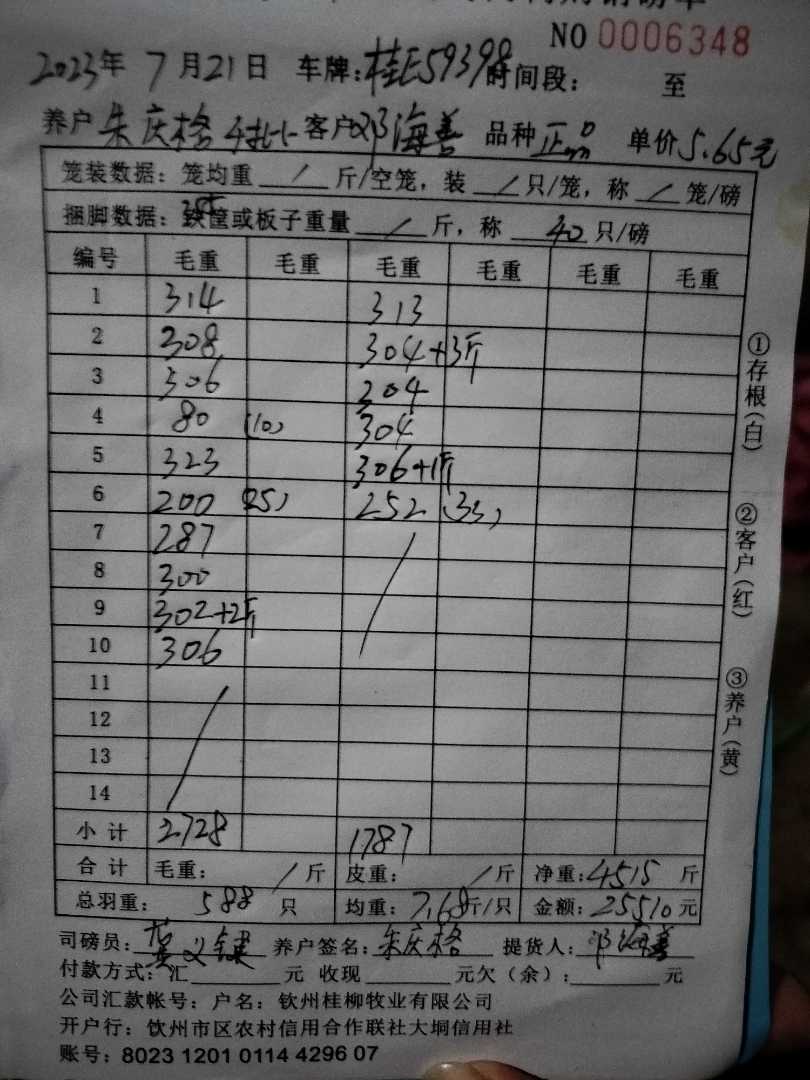 NO 0006348
2023年 7月21日 车牌:桂E59398 时间段: 至
养户 朱庆格 客户 邓海善 品种 正品 单价 5.65元
笼装数据:笼均重 / 斤/空笼,装 / 只/笼,称 / 笼/磅
捆脚数据:铁筐或板子重量 / 斤,称 40 只/磅
编号 毛重 毛重 毛重 毛重 毛重 毛重
1 314 313
2 308 304+3斤
3 306 304
4 80 (10) 304
5 323 306+1斤
6 200 (25) 252 (33)
7 287
8 300
9 302+2斤
10 306
11
12
13
14
小计 2728 1787
合计 毛重: / 斤 皮重: / 斤 净重:4515 斤
总羽重: 588 只 均重:7.68斤/只 金额:25510元
司磅员: 养户签名:朱庆格 提货人:邓海善
付款方式:汇 元 收现 元欠(余): 元
公司汇款帐号:户名:钦州桂柳牧业有限公司
开户行:钦州市区农村信用合作联社大垌信用社
账号:8023 1201 0114 4296 07
①存根(白)
②客户(红)
③养户(黄)